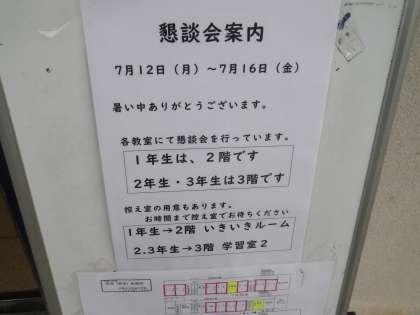 懇談会案内
7月12日（月）～7月16日（金）
暑い中ありがとうございます。
各教室にて懇談会を行っています。
1年生は、2階です
2年生・3年生は3階です
控え室の用意もあります。
お時間まで控え室でお待ちください
1年生→2階 いきいきルーム
2.3年生→3階 学習室2